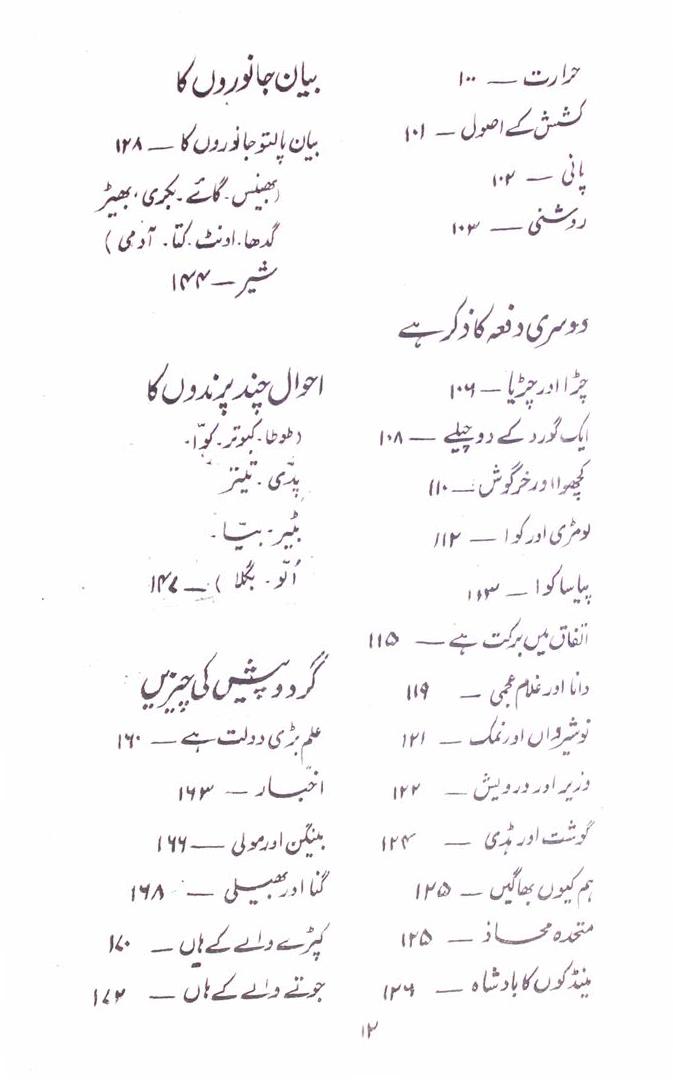 حرارت — ۱۰۰
کشش کے اصول — ۱۰۱
پانی — ۱۰۲
روشنی — ۱۰۳
دوسری دفعہ کا ذکر ہے
چڑا اور چڑیا — ۱۰۶
ایک گورو کے دو چیلے — ۱۰۸
کچھوا اور خرگوش — ۱۱۰
لومڑی اور کوا — ۱۱۲
پیاسا کوا — ۱۱۳
اتفاق میں برکت ہے — ۱۱۵
دانا اور غلام عجمی — ۱۱۹
نوشیرواں اور نمک — ۱۲۱
وزیر اور درویش — ۱۲۲
گوشت اور ہڈی — ۱۲۴
ہم کیوں بھاگیں — ۱۲۵
متحدہ محاذ — ۱۲۵
مینڈکوں کا بادشاہ — ۱۲۶
بیان جانوروں کا
بیان پالتو جانوروں کا — ۱۲۸
(بھینس۔ گائے۔ بکری، بھیڑ
گدھا۔ اونٹ۔ کتا۔ آدمی)
شیر — ۱۴۴
احوال چند پرندوں کا
(طوطا۔ کبوتر۔ کوّا۔
پدّی۔ تیتر
بٹیر۔ بیّا۔
اُلّو۔ بگلا) — ۱۴۷
گرد و پیش کی چیزیں
علم بڑی دولت ہے — ۱۶۰
اخبار — ۱۶۳
بینگن اور مولی — ۱۶۶
گنا اور بھیلی — ۱۶۸
کپڑے والے کے ہاں — ۱۷۰
جوتے والے کے ہاں — ۱۷۲
۱۲